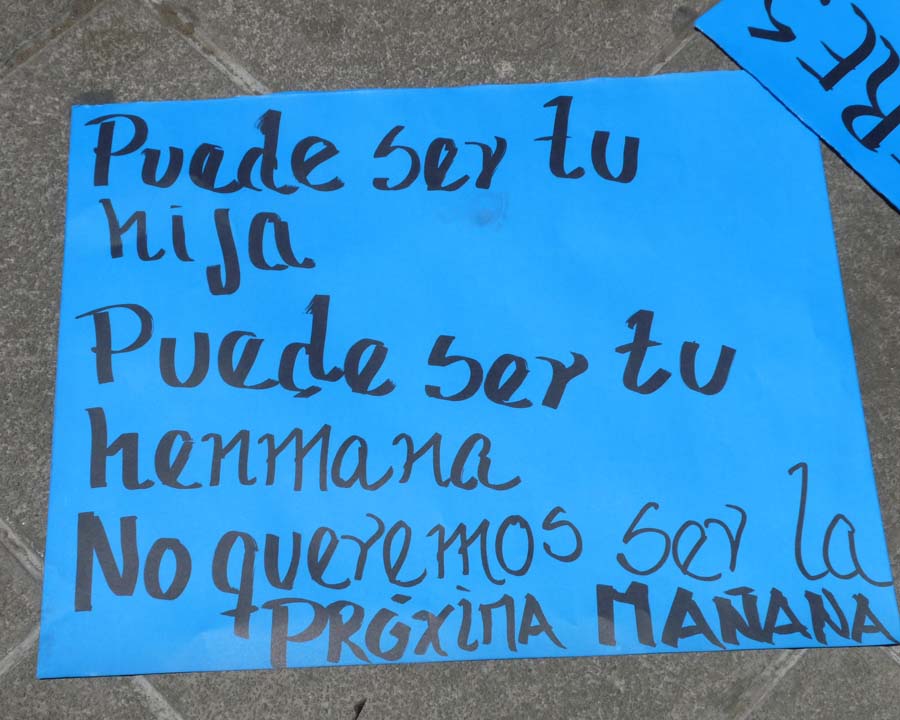 Puede ser tu
hija
Puede ser tu
henmana
No queremos ser la
PRÓXIMA MAÑANA
RES